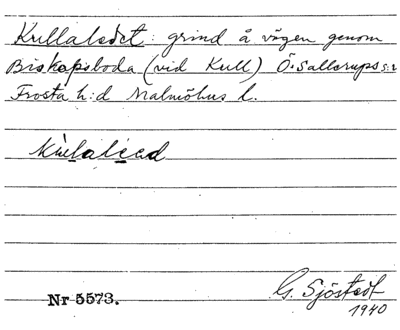 Kullaledet: grind å vägen genom
Biskopsboda (vid Kull) Ö. Sallerups s:n
Frosta h:d Malmöhus l.
G. Sjöstedt
Nr 5573.
1940